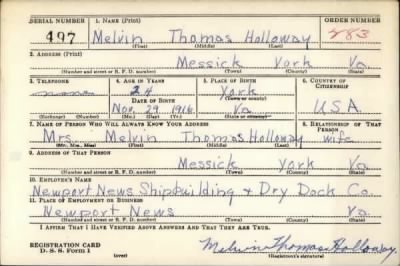 SERIAL NUMBER 1. NAME (Print) ORDER NUMBER
497 Melvin Thomas Holloway 283
(First) (Middle) (Last)
2. ADDRESS (Print)
Messick York Va.
(Number and street or R. F. D. number) (Town) (County) (State)
3. TELEPHONE 4. AGE IN YEARS 5. PLACE OF BIRTH 6. COUNTRY OF CITIZENSHIP
none 24 York
DATE OF BIRTH (Town or county)
Nov. 29 1916 Va. USA
(Exchange) (Number) (Mo.) (Day) (Yr.) (State or country)
7. NAME OF PERSON WHO WILL ALWAYS KNOW YOUR ADDRESS 8. RELATIONSHIP OF THAT PERSON
Mrs. Melvin Thomas Holloway wife
(Mr., Mrs., Miss) (First) (Middle) (Last)
9. ADDRESS OF THAT PERSON
Messick York Va.
(Number and street or R. F. D. number) (Town) (County) (State)
10. EMPLOYER'S NAME
Newport News Shipbuilding & Dry Dock Co.
11. PLACE OF EMPLOYMENT OR BUSINESS
Newport News Va.
(Number and street or R. F. D. number) (Town) (County) (State)
I AFFIRM THAT I HAVE VERIFIED ABOVE ANSWERS AND THAT THEY ARE TRUE.
REGISTRATION CARD
D. S. S. Form 1 (over) Melvin Thomas Holloway
(Registrant's signature)